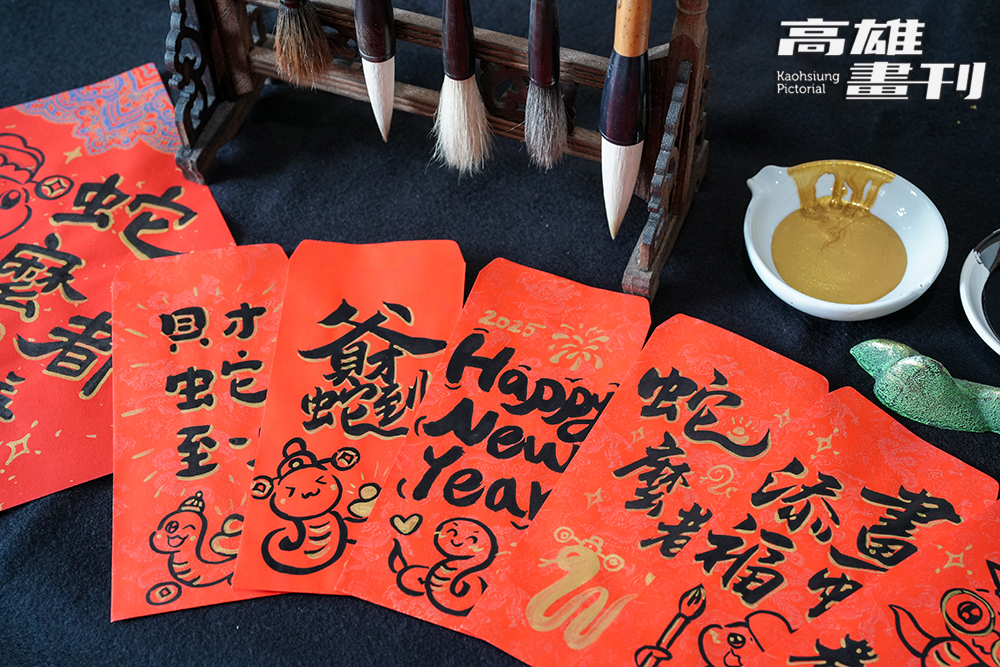 高雄
畫刊
Kaohsiung
Pictorial
蛇
麼者
財
蛇
至
財
蛇到
2025
Happy
New
Year
蛇
麼
者
添
福
畫
中